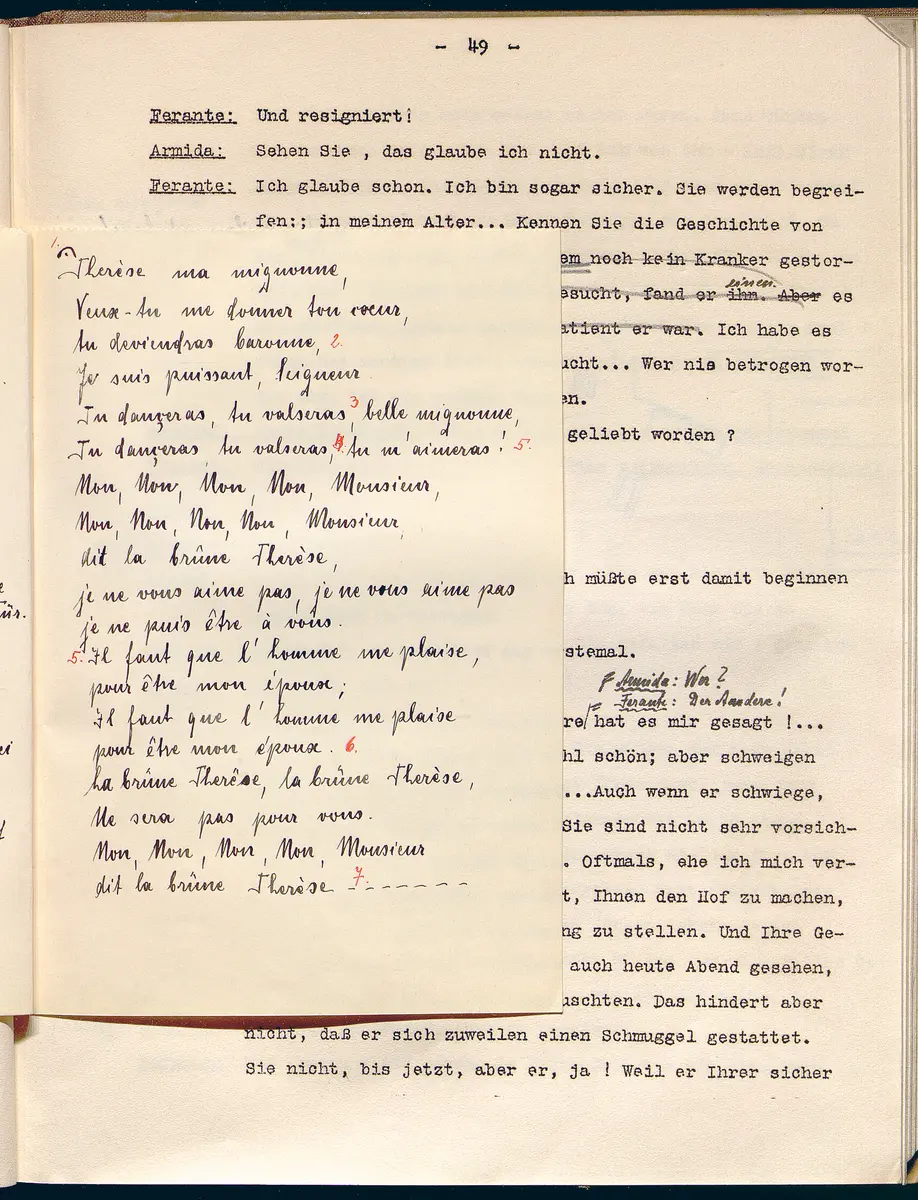 - 49 -
Ferante: Und resigniert!
Armida: Sehen Sie , das glaube ich nicht.
Ferante: Ich glaube schon. Ich bin sogar sicher. Sie werden begrei-
fen:; in meinem Alter... Kennen Sie die Geschichte von
em noch kein Kranker gestor-
einen.
esucht, fand er ihn. Aber es
atient er war. Ich habe es
ucht... Wer nie betrogen wor-
en.
geliebt worden ?
h müßte erst damit beginnen
stemal.
Armida: Wer?
Ferante: Der Andere!
re hat es mir gesagt !...
hl schön; aber schweigen
...Auch wenn er schwiege,
Sie sind nicht sehr vorsich-
. Oftmals, ehe ich mich ver-
t, Ihnen den Hof zu machen,
ng zu stellen. Und Ihre Ge-
auch heute Abend gesehen,
uschten. Das hindert aber
nicht, daß er sich zuweilen einen Schmuggel gestattet.
Sie nicht, bis jetzt, aber er, ja ! Weil er Ihrer sicher
1.
Therèse ma mignonne,
Veux-tu me donner ton cœur,
tu deviendras baronne, 2.
Je suis puissant, Seigneur.
Tu dançeras, tu valseras, 3 belle mignonne,
Tu dançeras, tu valseras, 4. tu m'aimeras! 5.
Non, Non, Non, Non, Monsieur,
Non, Non, Non, Non, Monsieur,
dit la brûne Therèse,
je ne vous aime pas, je ne vous aime pas
je ne puis être à vous.
5. Il faut que l'homme me plaise,
pour être mon époux;
Il faut que l'homme me plaise
pour être mon époux. 6.
La brûne Therèse, la brûne Therèse,
Ne sera pas pour vous.
Non, Non, Non, Non, Monsieur
dit la brûne Therèse 7. - - - - - -
ür.
ei